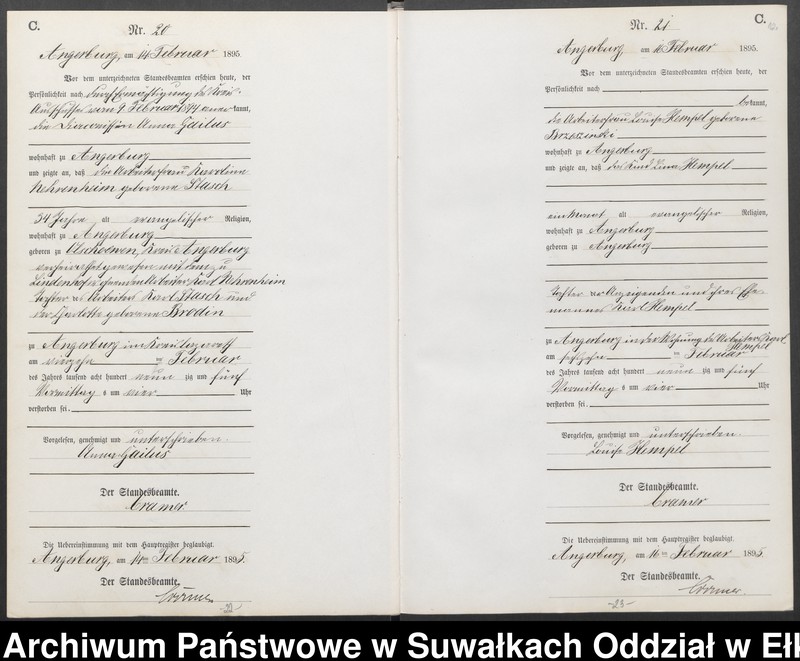 C.
Nr. 20
Angerburg, am 14 Februar 1895.
Vor dem unterzeichneten Standesbeamten erschien heute, der
Persönlichkeit nach durch des Kreis-
Ausschusses vom 9. Februar 1894 anerkannt,
die Anna Gailus
wohnhaft zu Angerburg
und zeigte an, daß die Arbeiterfrau Karoline
Nehrenheim geborene Stasch
34 Jahre alt evangelischer Religion,
wohnhaft zu Angerburg
geboren zu Olschöwen, Kreis Angerburg
verheirathet gewesen mit dem zu
wohnenden Arbeiter Karl Nehrenheim
Tochter des Arbeiters Karl Stasch und
der Charlotte geborene Brodin
zu Angerburg im
am vierzehn ten Februar
des Jahres tausend acht hundert neun zig und fünf
Vormittag s um vier Uhr
verstorben sei.
Vorgelesen, genehmigt und unterschrieben.
Anna Gailus
Der Standesbeamte.
Cramer
Die Uebereinstimmung mit dem Hauptregister beglaubigt.
Angerburg, am 14ten Februar 1895.
Der Standesbeamte.
Cramer
-22-
C.
Nr. 21
Angerburg, am 16 Februar 1895.
Vor dem unterzeichneten Standesbeamten erschien heute, der
Persönlichkeit nach
bekannt,
die Arbeiterfrau Louise Hempel geborene
Brzezinski
wohnhaft zu Angerburg
und zeigte an, daß das Kind Hempel
ein Monat alt evangelischer Religion,
wohnhaft zu Angerburg
geboren zu Angerburg
Tochter der Anzeigenden und ihres Ehe-
mannes Karl Hempel
zu Angerburg in der Wohnung des Arbeiters Karl
Hempel
am ten Februar
des Jahres tausend acht hundert neun zig und fünf
Vormittag s um vier Uhr
verstorben sei.
Vorgelesen, genehmigt und unterschrieben.
Louise Hempel
Der Standesbeamte.
Cramer
Die Uebereinstimmung mit dem Hauptregister beglaubigt.
Angerburg, am 16ten Februar 1895
Der Standesbeamte.
Cramer.
-23-
Archiwum Państwowe w Suwałkach Oddział w Ełk